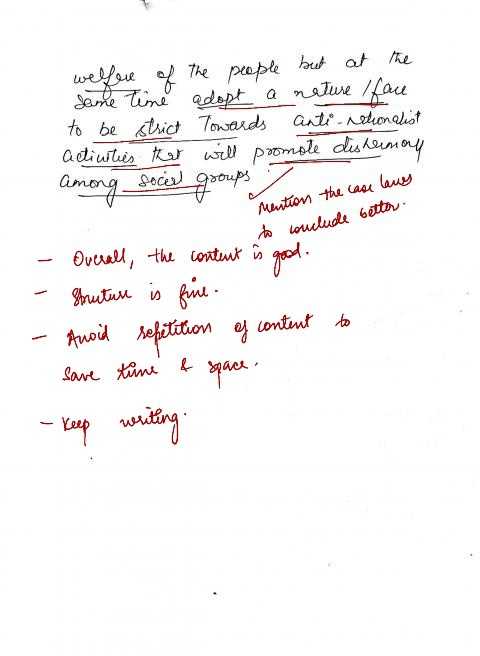 welfare of the people but at the
same time adopt a nature/face
to be strict Towards anti-nationalist
activities that will promote disharmony
among social groups.
Mention the case laws
to conclude better.
- Overall, the content is good.
- Structure is fine.
- Avoid repetition of content to
save time & space.
- Keep writing.